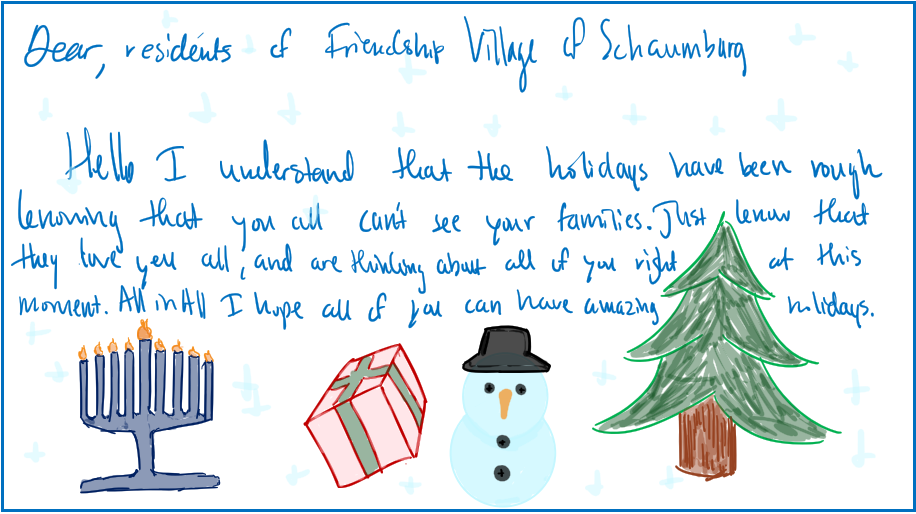 Dear, residents of Friendship Village of Schaumburg
Hello I understand that the holidays have been rough
knowing that you all can't see your families. Just know that
they love you all, and are thinking about all of you right at this
moment. All in All I hope all of you can have amazing holidays.